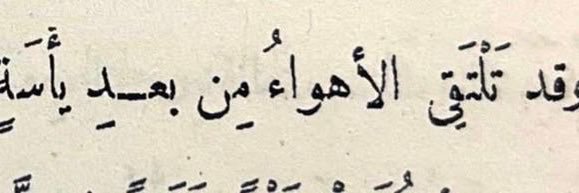 وقد تَلْتَقِي الأهواءُ مِن بعــدِ يأْسَةٍ